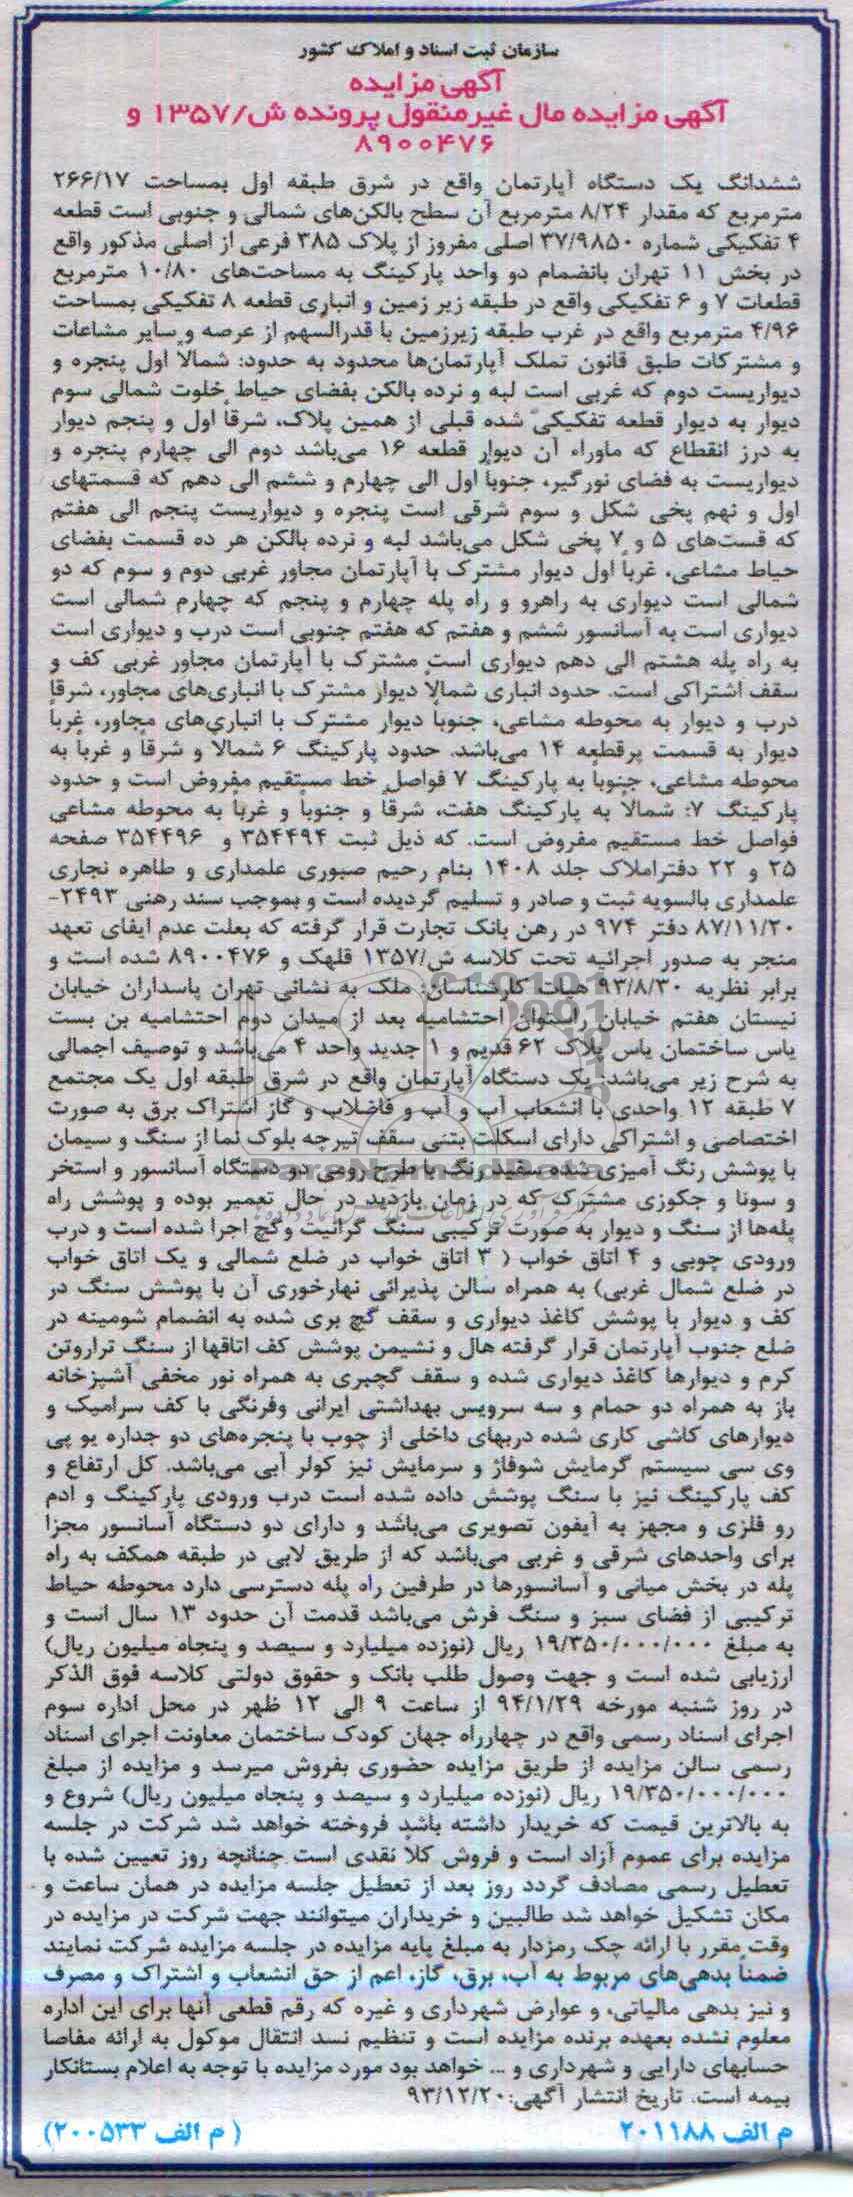 سازمان ثبت اسناد و املاک کشور
آگهی مزایده
آگهی مزایده مال غیرمنقول پرونده ش/۱۳۵۷ و
۸۹۰۰۴۷۶
ششدانگ یک دستگاه آپارتمان واقع در شرق طبقه اول بمساحت ۲۶۶/۱۷
مترمربع که مقدار ۸/۲۴ مترمربع آن سطح بالکن‌های شمالی و جنوبی است قطعه
۴ تفکیکی شماره ۳۷/۹۸۵۰ اصلی مفروز از پلاک ۳۸۵ فرعی از اصلی مذکور واقع
در بخش ۱۱ تهران بانضمام دو واحد پارکینگ به مساحت‌های ۱۰/۸۰ مترمربع
قطعات ۷ و ۶ تفکیکی واقع در طبقه زیر زمین و انباری قطعه ۸ تفکیکی بمساحت
۴/۹۶ مترمربع واقع در غرب طبقه زیرزمین با قدرالسهم از عرصه و سایر مشاعات
و مشترکات طبق قانون تملک آپارتمان‌ها محدود به حدود: شمالاً اول پنجره و
دیواریست دوم که غربی است لبه و نرده بالکن بفضای حیاط خلوت شمالی سوم
دیوار به دیوار قطعه تفکیکی شده قبلی از همین پلاک، شرقاً اول و پنجم دیوار
به درز انقطاع که ماوراء آن دیوار قطعه ۱۶ می‌باشد دوم الی چهارم پنجره و
دیواریست به فضای نورگیر، جنوباً اول الی چهارم و ششم الی دهم که قسمتهای
اول و نهم پخی شکل و سوم شرقی است پنجره و دیواریست پنجم الی هفتم
که قست‌های ۵ و ۷ پخی شکل می‌باشد لبه و نرده بالکن هر ده قسمت بفضای
حیاط مشاعی، غرباً اول دیوار مشترک با آپارتمان مجاور غربی دوم و سوم که دو
شمالی است دیواری به راهرو و راه پله چهارم و پنجم که چهارم شمالی است
دیواری است به آسانسور ششم و هفتم که هفتم جنوبی است درب و دیواری است
به راه پله هشتم الی دهم دیواری است مشترک با آپارتمان مجاور غربی کف و
سقف اشتراکی است. حدود انباری شمالاً دیوار مشترک با انباری‌های مجاور، شرقاً
درب و دیوار به محوطه مشاعی، جنوباً دیوار مشترک با انباری‌های مجاور، غرباً
دیوار به قسمت پرقطعه ۱۴ می‌باشد. حدود پارکینگ ۶ شمالاً و شرقاً و غرباً به
محوطه مشاعی، جنوباً به پارکینگ ۷ فواصل خط مستقیم مفروض است و حدود
پارکینگ ۷: شمالاً به پارکینگ هفت، شرقاً و جنوباً و غرباً به محوطه مشاعی
فواصل خط مستقیم مفروض است. که ذیل ثبت ۳۵۴۴۹۴ و ۳۵۴۴۹۶ صفحه
۲۵ و ۲۲ دفتراملاک جلد ۱۴۰۸ بنام رحیم صبوری علمداری و طاهره نجاری
علمداری بالسویه ثبت و صادر و تسلیم گردیده است و بموجب سند رهنی ۲۴۹۳-
۸۷/۱۱/۲۰ دفتر ۹۷۴ در رهن بانک تجارت قرار گرفته که بعلت عدم ایفای تعهد
منجر به صدور اجرائیه تحت کلاسه ش/۱۳۵۷ قلهک و ۸۹۰۰۴۷۶ شده است و
برابر نظریه ۹۳/۸/۳۰ هیات کارشناسان: ملک به نشانی تهران پاسداران خیابان
نیستان هفتم خیابان احتشامیه بعد از میدان دوم احتشامیه بن بست
یاس ساختمان یاس پلاک ۶۲ قدیم و ۱ جدید واحد ۴ می‌باشد و توصیف اجمالی
به شرح زیر می‌باشد: یک دستگاه آپارتمان واقع در شرق طبقه اول یک مجتمع
۷ طبقه ۱۲ واحدی با انشعاب آب و آب و فاضلاب و گاز اشتراک برق به صورت
اختصاصی و اشتراکی دارای اسکلت بتنی سقف تیرچه بلوک نما از سنگ و سیمان
با پوشش رنگ آمیزی شده سفید رنگ با طرح رومی دو دستگاه آسانسور و استخر
و سونا و جکوزی مشترک که در زمان بازدید در حال تعمیر بوده و پوشش راه
پله‌ها از سنگ و دیوار به صورت ترکیبی سنگ گرانیت و گچ اجرا شده است و درب
ورودی چوبی و ۴ اتاق خواب ( ۳ اتاق خواب در ضلع شمالی و یک اتاق خواب
در ضلع شمال غربی) به همراه سالن پذیرائی نهارخوری آن با پوشش سنگ در
کف و دیوار با پوشش کاغذ دیواری و سقف گچ بری شده به انضمام شومینه در
ضلع جنوب آپارتمان قرار گرفته هال و نشیمن پوشش کف اتاقها از سنگ تراروتن
کرم و دیوارها کاغذ دیواری شده و سقف گچبری به همراه نور مخفی آشپزخانه
باز به همراه دو حمام و سه سرویس بهداشتی ایرانی وفرنگی با کف سرامیک و
دیوارهای کاشی کاری شده دربهای داخلی از چوب با پنجره‌های دو جداره یو پی
وی سی سیستم گرمایش شوفاژ و سرمایش نیز کولر آبی می‌باشد. کل ارتفاع و
کف پارکینگ نیز با سنگ پوشش داده شده است درب ورودی پارکینگ و ادم
رو فلزی و مجهز به آیفون تصویری می‌باشد و دارای دو دستگاه آسانسور مجزا
برای واحدهای شرقی و غربی می‌باشد که از طریق لابی در طبقه همکف به راه
پله در بخش میانی و آسانسورها در طرفین راه پله دسترسی دارد محوطه حیاط
ترکیبی از فضای سبز و سنگ فرش می‌باشد قدمت آن حدود ۱۳ سال است و
به مبلغ ۱۹/۳۵۰/۰۰۰/۰۰۰ ریال (نوزده میلیارد و سیصد و پنجاه میلیون ریال)
ارزیابی شده است و جهت وصول طلب بانک و حقوق دولتی کلاسه فوق الذکر
در روز شنبه مورخه ۹۴/۱/۲۹ از ساعت ۹ الی ۱۲ ظهر در محل اداره سوم
اجرای اسناد رسمی واقع در چهارراه جهان کودک ساختمان معاونت اجرای اسناد
رسمی سالن مزایده از طریق مزایده حضوری بفروش میرسد و مزایده از مبلغ
۱۹/۳۵۰/۰۰۰/۰۰۰ ریال (نوزده میلیارد و سیصد و پنجاه میلیون ریال) شروع و
به بالاترین قیمت که خریدار داشته باشد فروخته خواهد شد شرکت در جلسه
مزایده برای عموم آزاد است و فروش کلاً نقدی است چنانچه روز تعیین شده با
تعطیل رسمی مصادف گردد روز بعد از تعطیل جلسه مزایده در همان ساعت و
مکان تشکیل خواهد شد طالبین و خریداران میتوانند جهت شرکت در مزایده در
وقت مقرر با ارائه چک رمزدار به مبلغ پایه مزایده در جلسه مزایده شرکت نمایند
ضمناً بدهی‌های مربوط به آب، برق، گاز، اعم از حق انشعاب و اشتراک و مصرف
و نیز بدهی مالیاتی، و عوارض شهرداری و غیره که رقم قطعی آنها برای این اداره
معلوم نشده بعهده برنده مزایده است و تنظیم نسد انتقال موکول به ارائه مفاصا
حسابهای دارایی و شهرداری و ... خواهد بود مورد مزایده با توجه به اعلام بستانکار
بیمه است. تاریخ انتشار آگهی:۹۳/۱۲/۲۰
م الف ۲۰۱۱۸۸ ( م الف ۲۰۰۵۳۳)
ParsNamadData